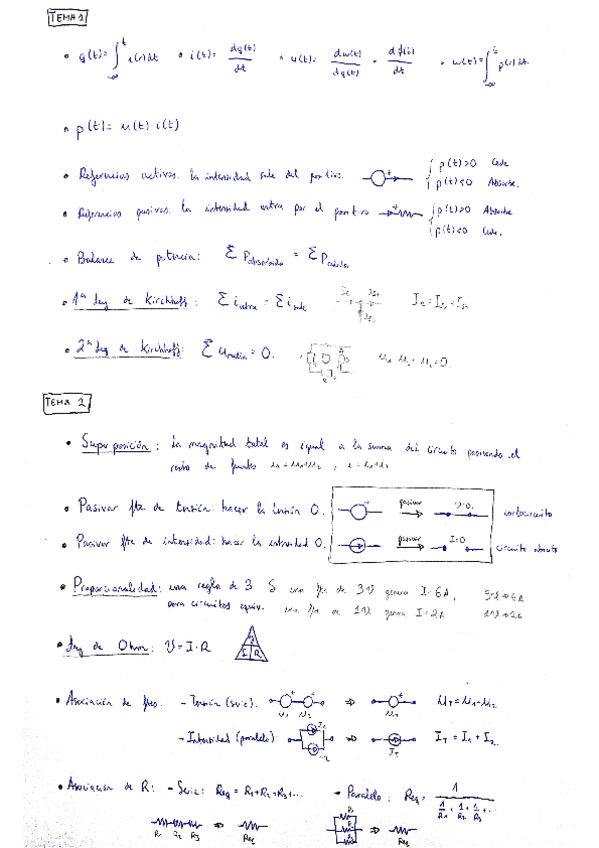 TEMA 1
• q(t) = ∫ i(t) dt • i(t) = dq(t)/dt • u(t) = dw(t)/dq(t) = dφ(t)/dt • w(t) = ∫ p(t) dt
• p(t) = u(t) i(t)
• Referencias activas. la intensidad sale del positivo. p(t)>0 Cede
p(t)<0 Absorbe.
• Referencias pasivas. la intensidad entra por el positivo p(t)>0 Absorbe
p(t)<0 Cede.
• Balance de potencia: Σ Pabsorbida = Σ Pcedida
• 1ª ley de Kirchhoff: Σ ientra = Σ isale
• 2ª ley de Kirchhoff: Σ umalla = 0.
TEMA 2
• Superposición: la magnitud total es igual a la suma del circuito pasivando el
resto de fuentes
• Pasivar fte de tensión: hacer la tensión 0. pasivar cortocircuito
• Pasivar fte de intensidad: hacer la intensidad 0. pasivar I=0 circuito abierto
• Proporcionalidad: una regla de 3 Si una fte de 3V genera I=6A,
para circuitos equiv. una fte de 1V genera I=2A
• Ley de Ohm: V = I·R
I R
• Asociación de ftes. - Tensión (serie). u1 u2 ⇒ uT
- Intensidad (paralelo) I1 ⇒ IT IT = I1 + I2
• Asociación de R: - Serie: Req = R1+R2+R3+... - Paralelo: Req = 1/(1/R1 + 1/R2 + 1/R3 + ...)
R1 R2 R3 ⇒ Req R1 R2 R3 ⇒ Req